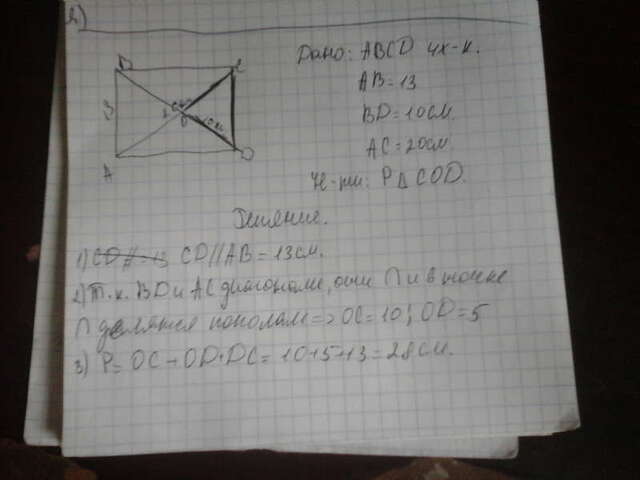 2)
B C
A D
O
13
Дано: ABCD 4х-к.
AB = 13
BD = 10см.
AC = 20см.
Н-ти: P△COD.
Решение.
1) CD // AB = 13см.
2) Т.к. BD и AC диагонали, они ∩ и в точке
∩ делятся пополам => OC = 10; OD = 5
3) P = OC + OD + DC = 10+5+13 = 28см.